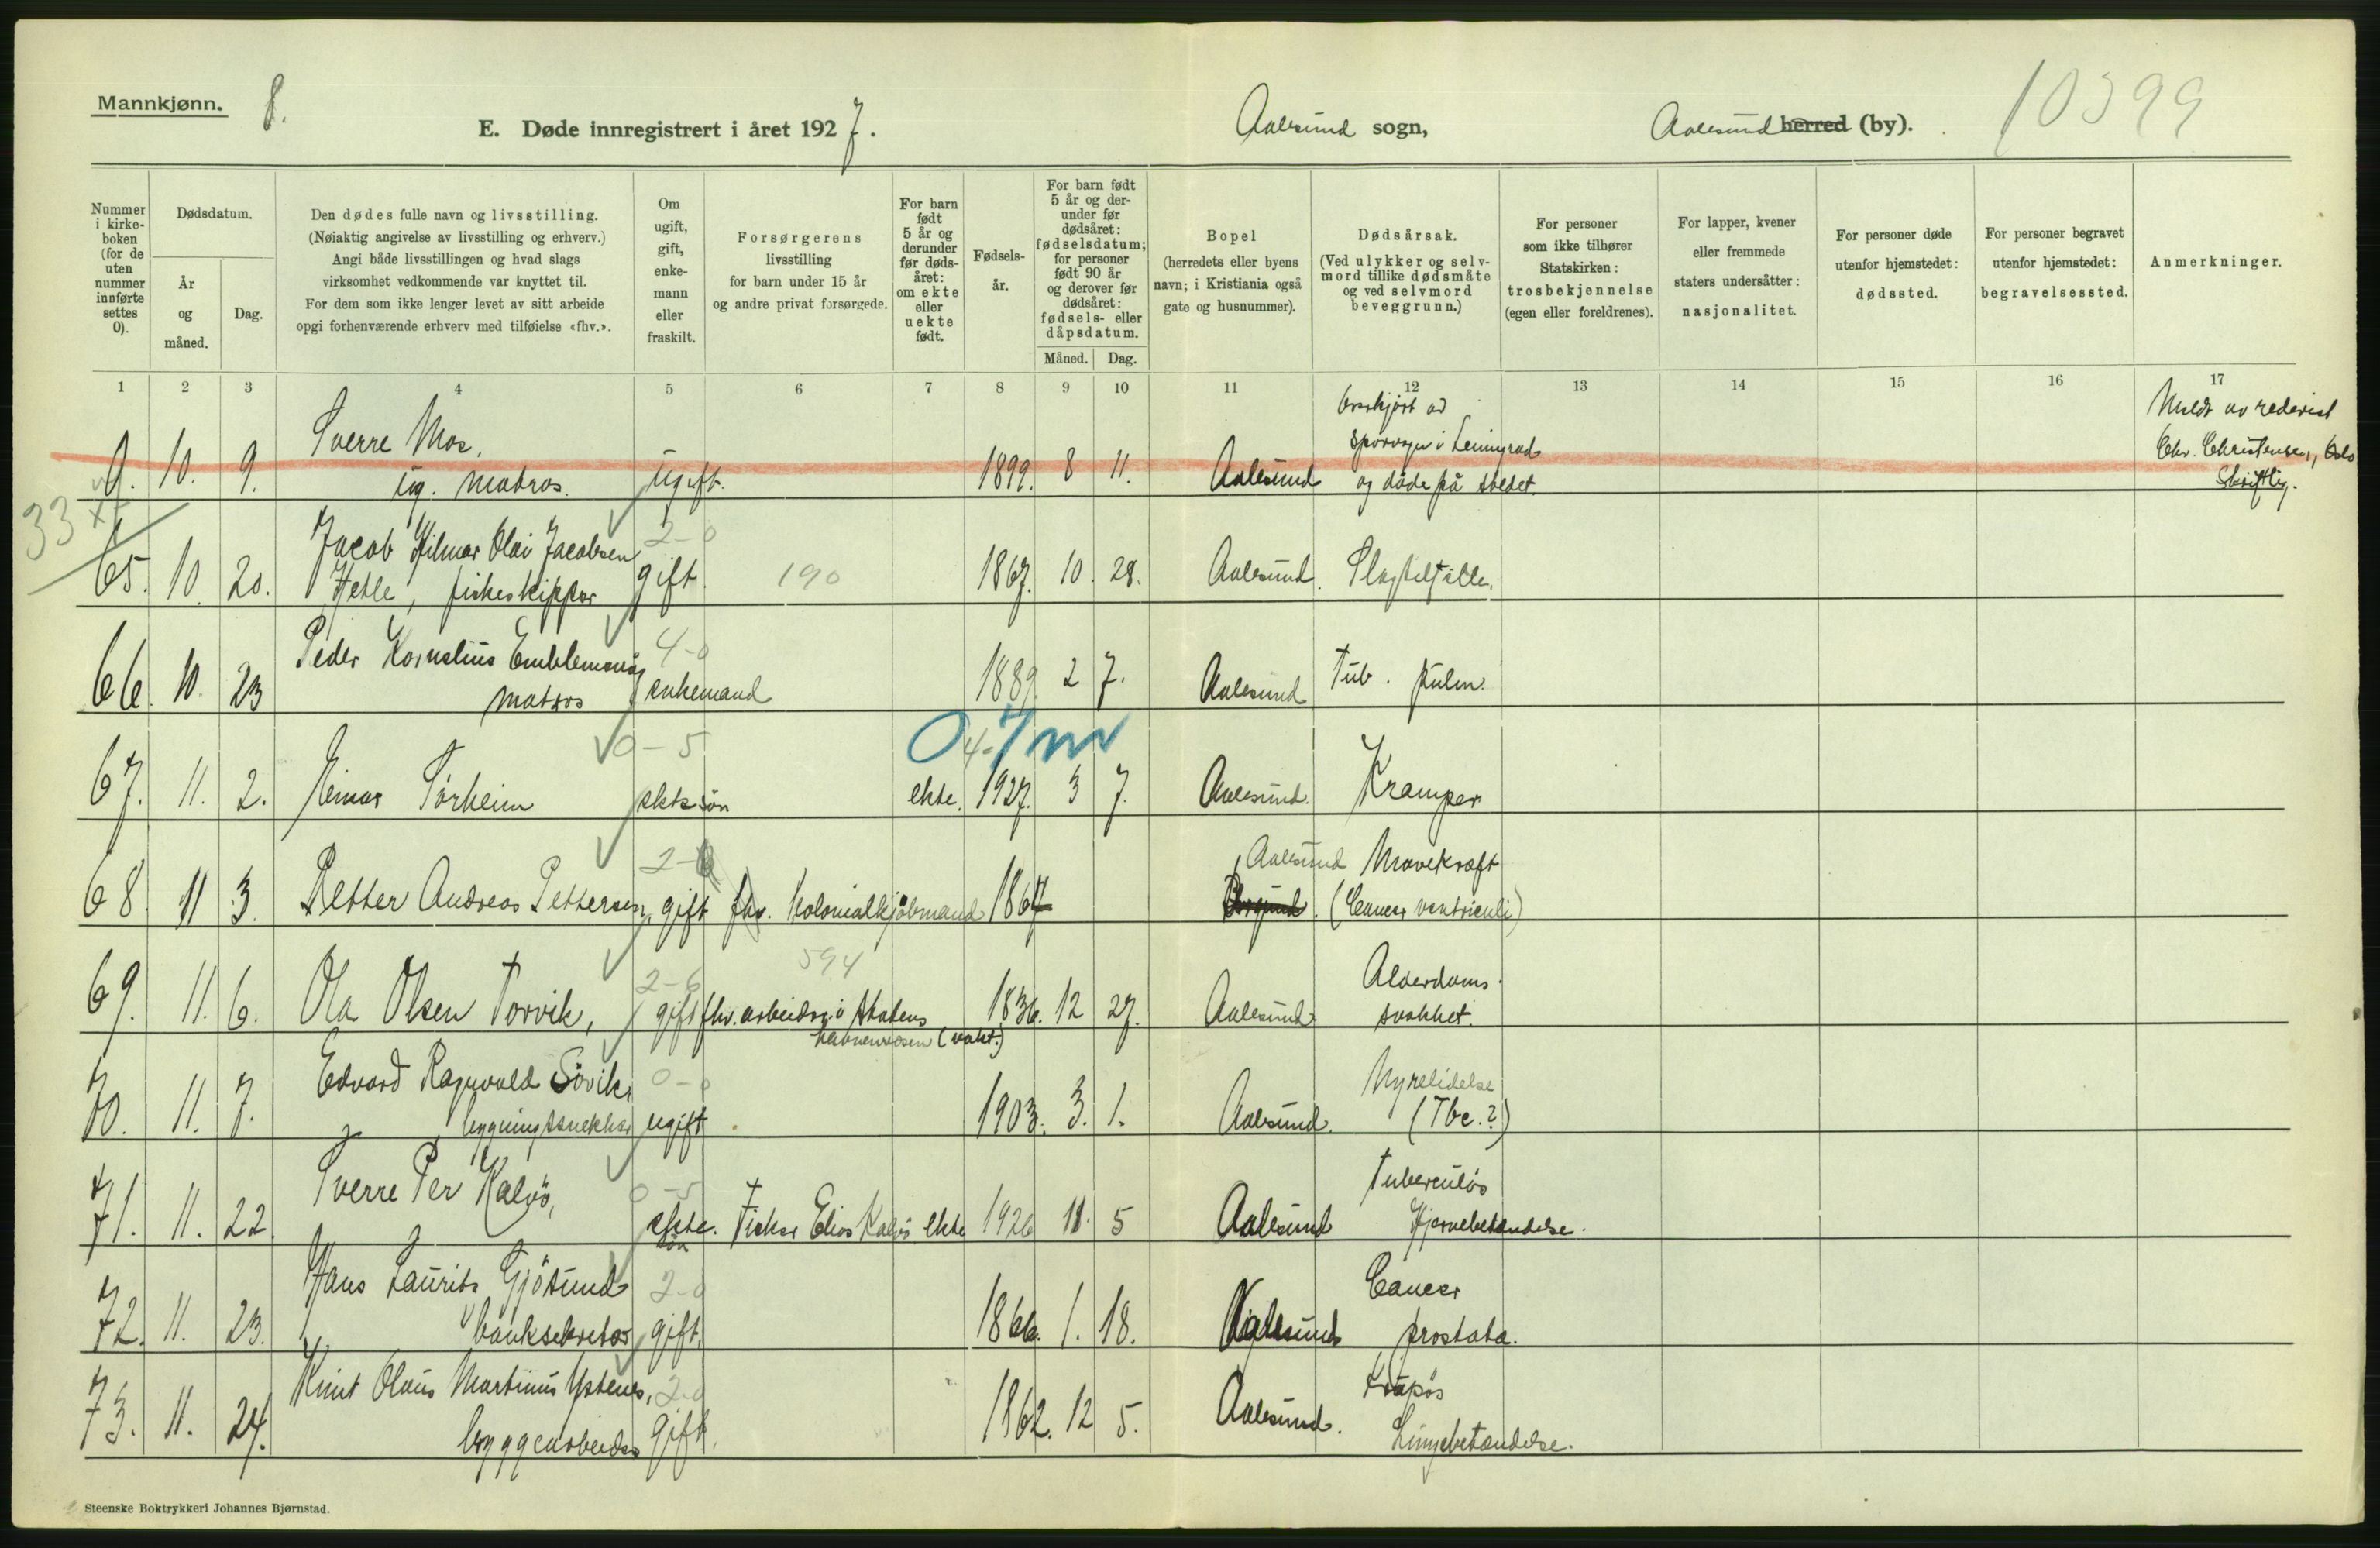 Mannkjønn.
8.
E. Døde innregistrert i året 1927.
Aalesund sogn,
Aalesund herred (by).
10399
Nummer i kirke-boken (for de uten nummer innførte settes 0).
Dødsdatum.
År og måned.
Dag.
Den dødes fulle navn og livsstilling.
(Nøiaktig angivelse av livsstilling og erhverv.)
Angi både livsstillingen og hvad slags
virksomhet vedkommende var knyttet til.
For dem som ikke lenger levet av sitt arbeide
opgi forhenværende erhverv med tilføielse «fhv.».
Om ugift, gift, enke-mann eller fraskilt.
Forsørgerens
livsstilling
for barn under 15 år
og andre privat forsørgede.
For barn født 5 år og derunder før døds-året: om ekte eller uekte født.
Fødsels-år.
For barn født 5 år og der-under før dødsåret: fødselsdatum; for personer født 90 år og derover før dødsåret: fødsels- eller dåpsdatum.
Måned.
Dag.
Bopel
(herredets eller byens
navn; i Kristiania også
gate og husnummer).
Dødsårsak.
(Ved ulykker og selv-
mord tillike dødsmåte
og ved selvmord
beveggrunn.)
For personer
som ikke tilhører
Statskirken:
trosbekjennelse
(egen eller foreldrenes).
For lapper, kvener
eller fremmede
staters undersåtter:
nasjonalitet.
For personer døde
utenfor hjemstedet:
dødssted.
For personer begravet
utenfor hjemstedet:
begravelsessted.
Anmerkninger.
1 2 3 4 5 6 7 8 9 10 11 12 13 14 15 16 17
Overkjørt av
Meldt av rederiet
Sverre Moe,
sporvogn i Leningrad
Chr. Christensen, Oslo
0. 10. 9. ug. matros. ugift. 1899. 8 11. Aalesund og døde på stedet. Skriftlig.
33
Jacob Hilmar Olai Jacobsen 2-0
65. 10. 20. Hetle, fiskeskipper gift. 190 1867. 10. 28. Aalesund. Slagtilfælle.
Peder Kornelius Emblemsvåg 4-0
66. 10. 23 matros enkemand 1889. 2 7. Aalesund Tub. pulm.
0-5 0 4-7 m
67. 11. 2. Einar Sørheim ekte søn ekte. 1927. 3 7. Aalesund. Kramper
2-6 Aalesund Mavekræft
68 11 3. Petter Andreas Pettersen, gift fhv. Kolonialkjøbmand 1867 Borgund. (Cancer ventriculi)
2-6 594 Alderdoms.
69. 11. 6. Ola Olsen Torvik, gift fhv. arbeider i Statens 1836. 12 27. Aalesund svakhet.
havnevæsen (vakt.)
Edvard Ragnvald Søvik, 0-0 Nyrelidelse
70. 11. 7. bygningssnekker ugift 1903. 3. 1. Aalesund. (Tbc.?)
Sverre Per Kalvø, 0-5 Tuberculøs
71. 11. 22. ekte. Fisker Elias Kalvø ekte 1926 11. 5 Aalesund Hjernebetændelse.
søn
Hans Laurits Gjøsund 2-0 Cancer
72. 11. 23. banksekretær gift. 1866. 1. 18. Aalesund prostata.
Knut Olaus Martinus Ystenes, 2-0 Krupøs
73. 11. 24. bryggearbeider gift. 1862. 12 5. Aalesund. Lungebetændelse.
Steenske Boktrykkeri Johannes Bjørnstad.